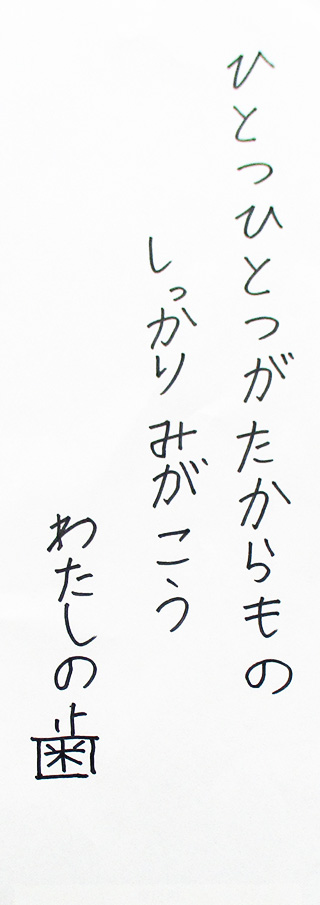 ひとつひとつがたからもの
しっかりみがこう
わたしの歯